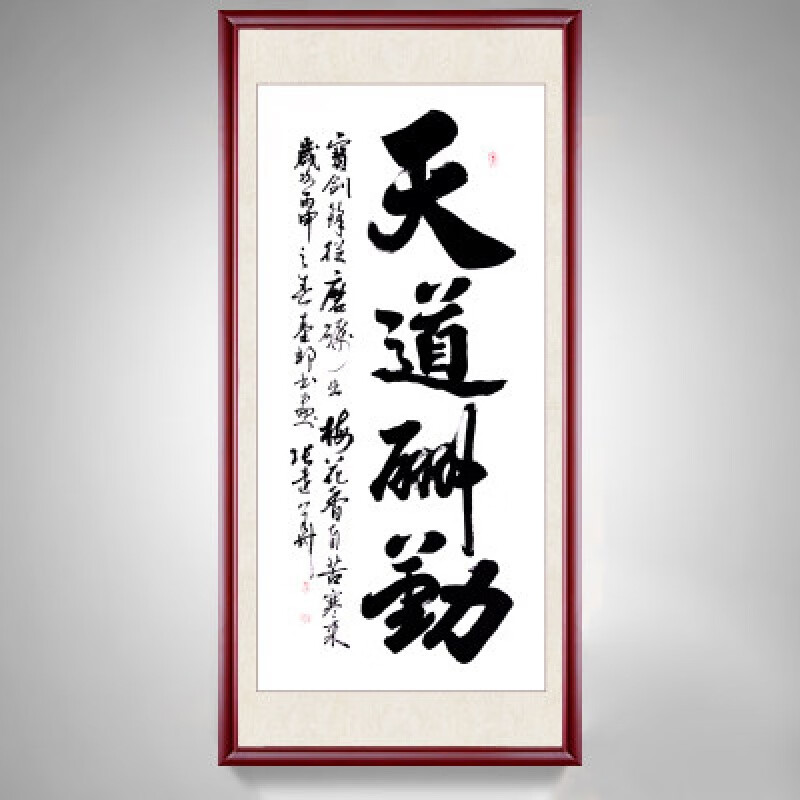 天道酬勤
寶劍鋒從磨礪出梅花香自苦寒来
歲次丙申之春